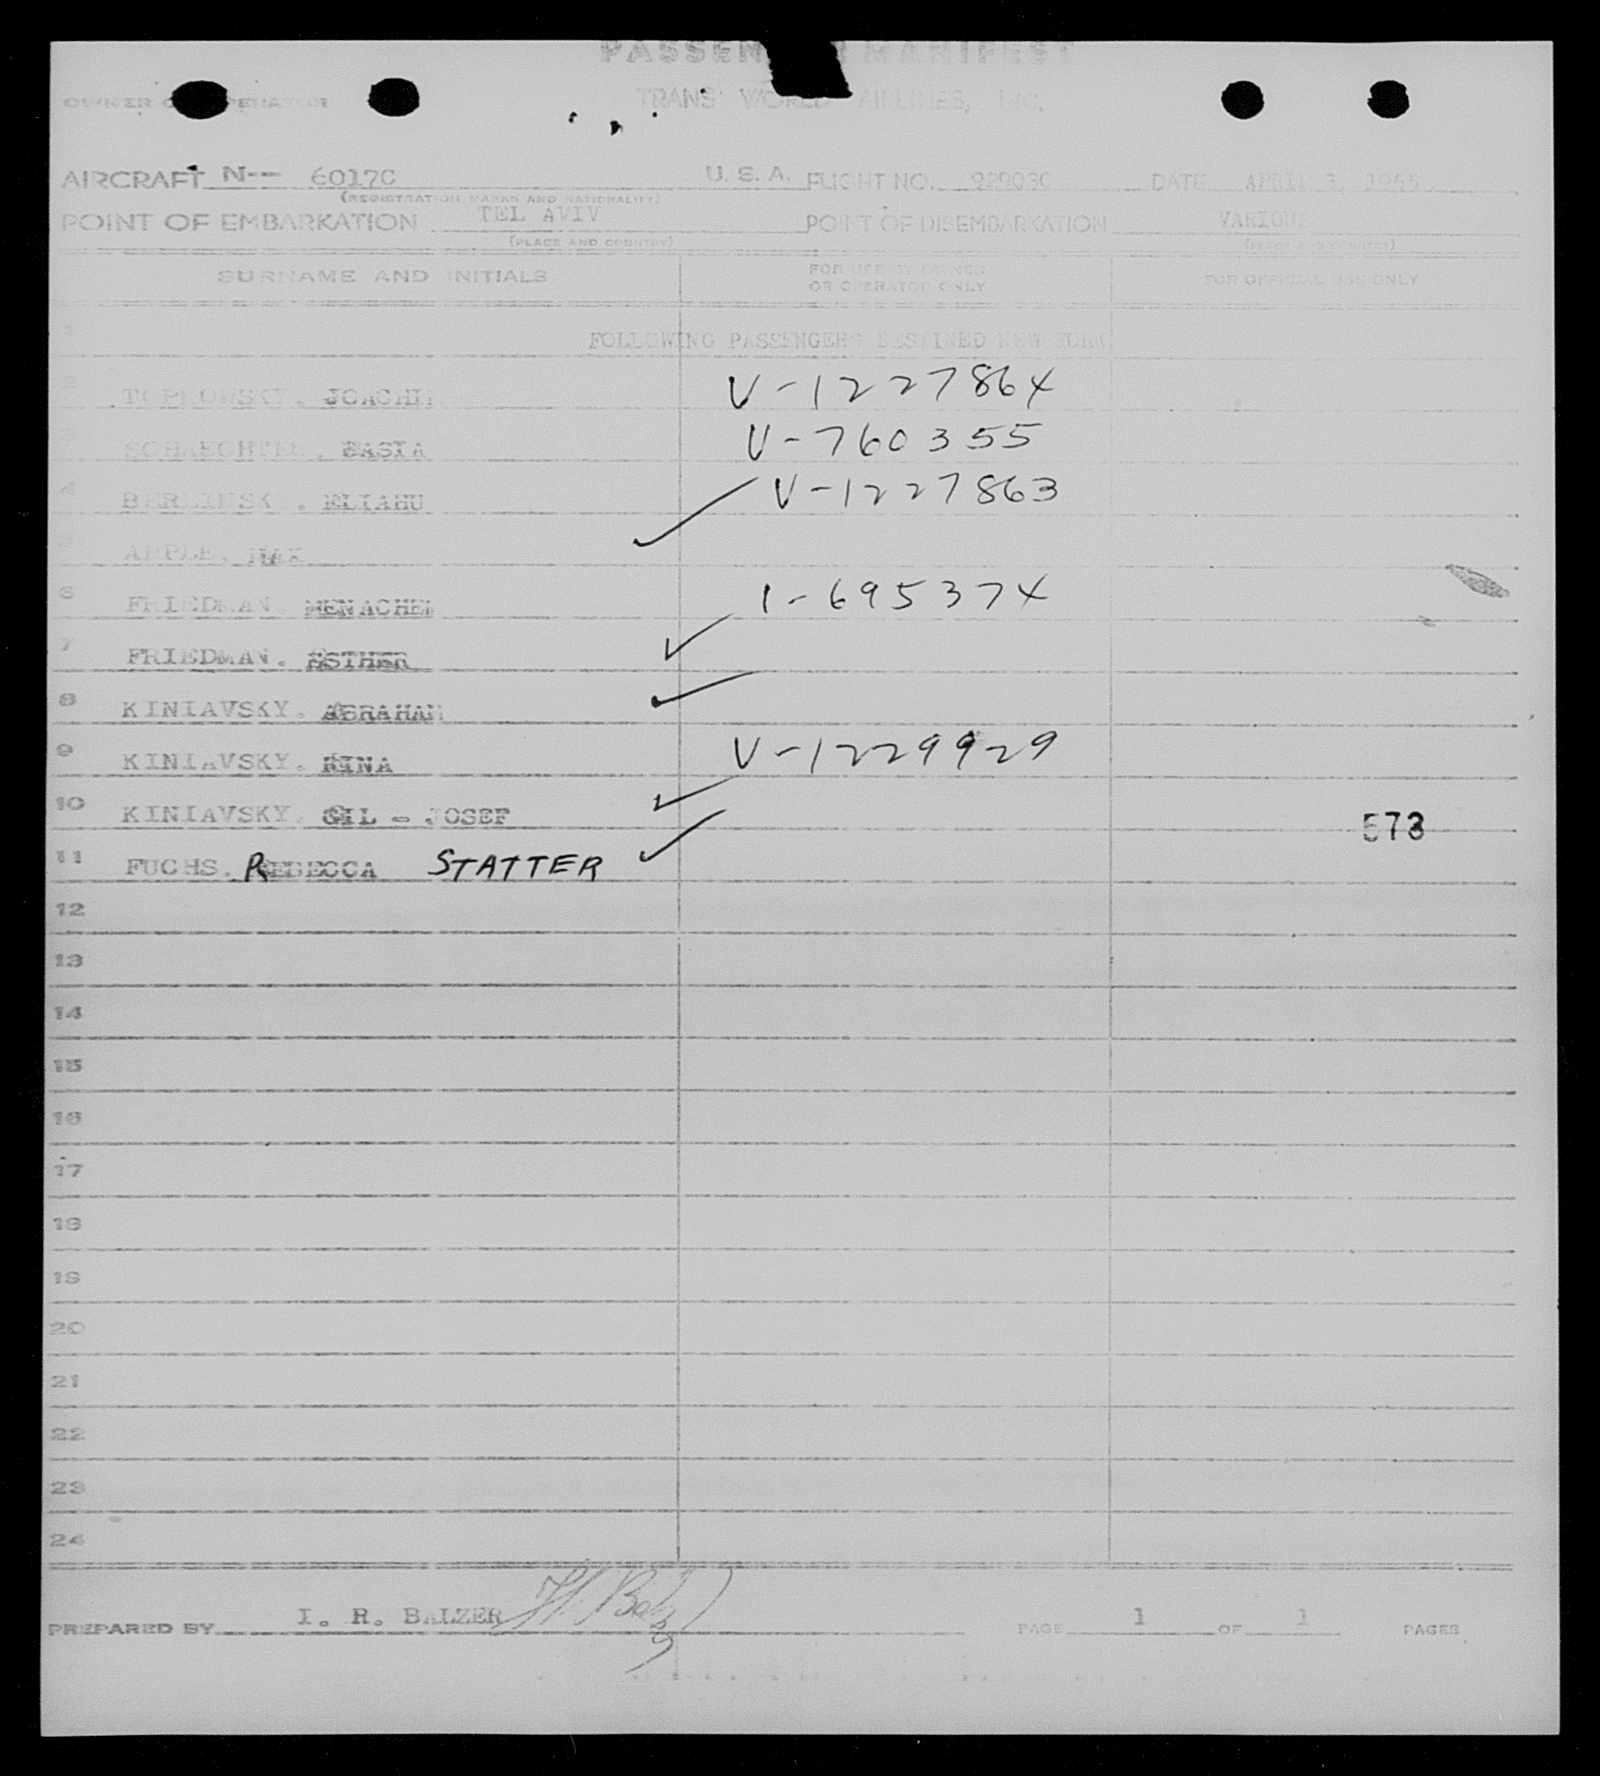 PASSENGER MANIFEST
OWNER OR OPERATOR TRANS WORLD AIRLINES, INC.
AIRCRAFT N-- 6017C U. S. A. FLIGHT NO. DATE APRIL 3,
(REGISTRATION MARKS AND NATIONALITY)
POINT OF EMBARKATION TEL AVIV POINT OF DISEMBARKATION VARIOUS
(PLACE AND COUNTRY) (PLACE AND COUNTRY)
SURNAME AND INITIALS FOR USE BY OWNER OR OPERATOR ONLY FOR OFFICIAL USE ONLY
1 FOLLOWING PASSENGERS DESTINED NEW YORK
2 JOACHIM V-1227864
3 BASIA V-760355
4 ELIAHU V-1227863
5 APPLE. MAX
6 FRIEDMAN. MENACHEM 1-695374
7 FRIEDMAN. ESTHER ✓
8 KINIAVSKY. ABRAHAM ✓
9 KINIAVSKY. RINA V-1229929
10 KINIAVSKY. GIL - JOSEF ✓
573
11 FUCHS. REBECCA STATTER ✓
12
13
14
15
16
17
18
19
20
21
22
23
24
PREPARED BY I. R. BALZER PAGE 1 OF 1 PAGES